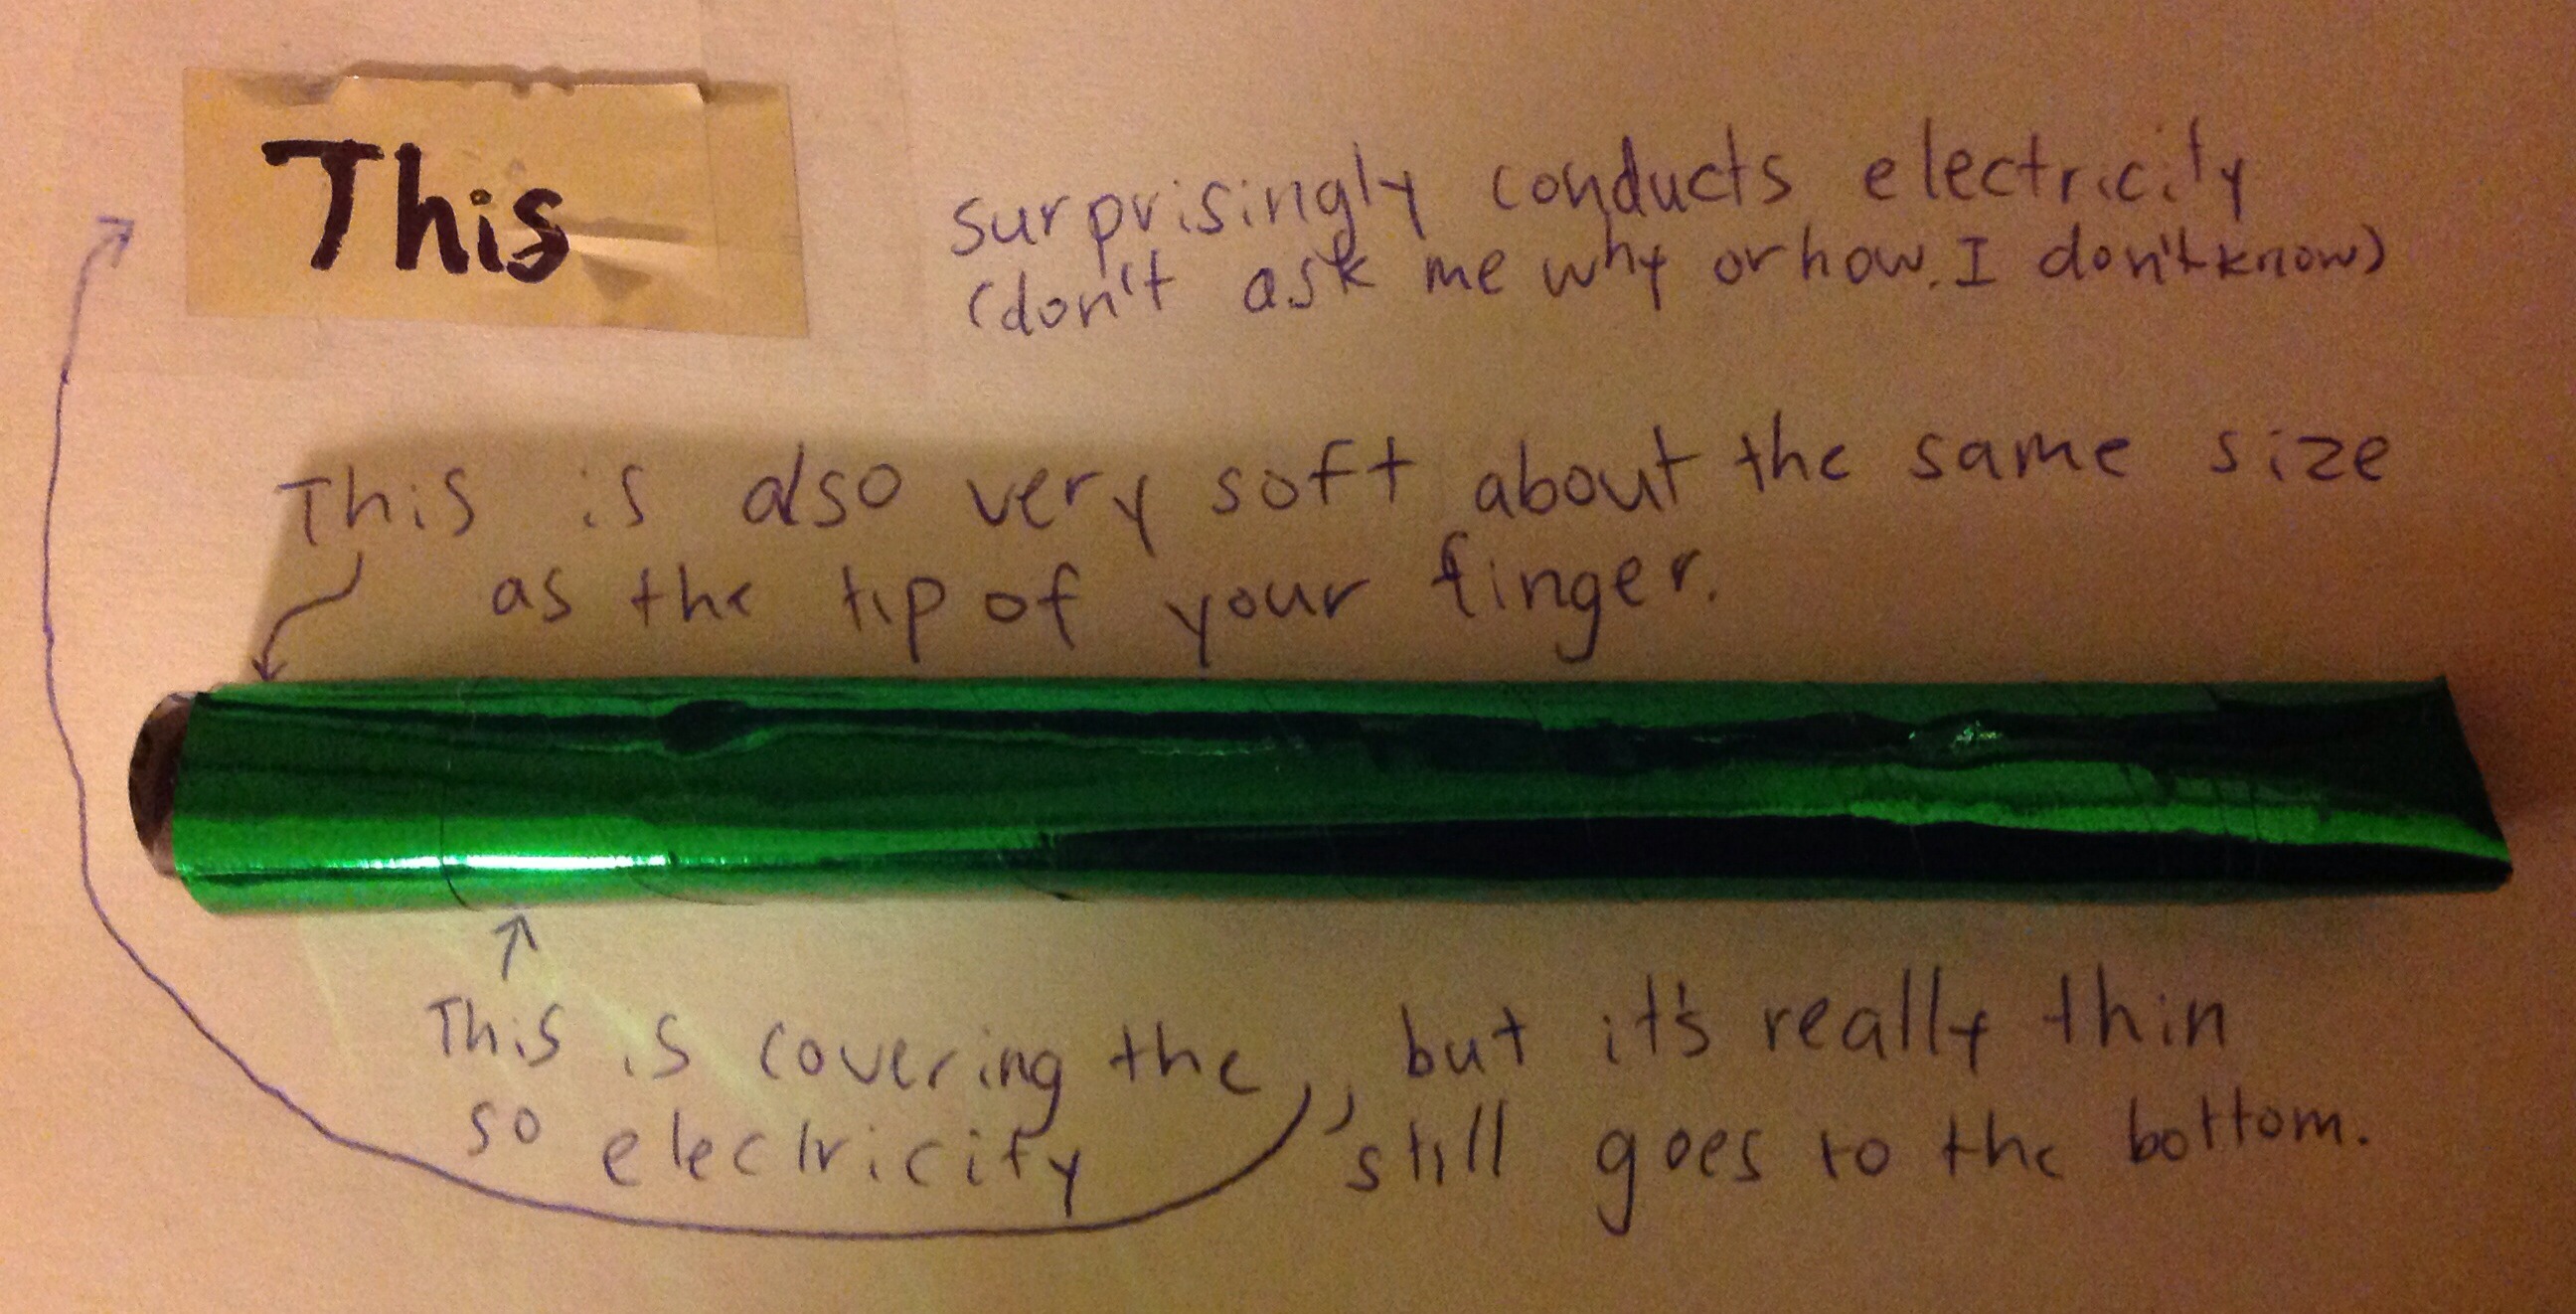 This
surprisingly conducts electricity
(don't ask me why or how. I don't know)
This is also very soft about the same size
as the tip of your finger.
This is covering the , but it's really thin
so electricity still goes to the bottom.